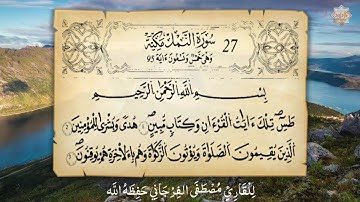 27 سُورَةُ النَّمْلِ مَكِّيَّةٌ
وَهْيَ خَمْسٌ وَتِسْعُونَ ءَايَةً 95
بِسْمِ اللَّهِ الرَّحْمَٰنِ الرَّحِيمِ
طَسِٓ تِلْكَ ءَايَٰتُ الْقُرْءَانِ وَكِتَابٖ مُّبِينٍ ١ هُدىً وَبُشْر۪ىٰ لِلْمُؤْمِنِينَ ٢
الَّذِينَ يُقِيمُونَ الصَّلَوٰةَ وَيُؤْتُونَ الزَّكَوٰةَ وَهُم بِالَاخِرَةِ هُمْ يُوقِنُونَ ٣
لِلْقَارِئِ مُصْطَفَى الفِرْجَانِي حَفِظَهُ اللَّه